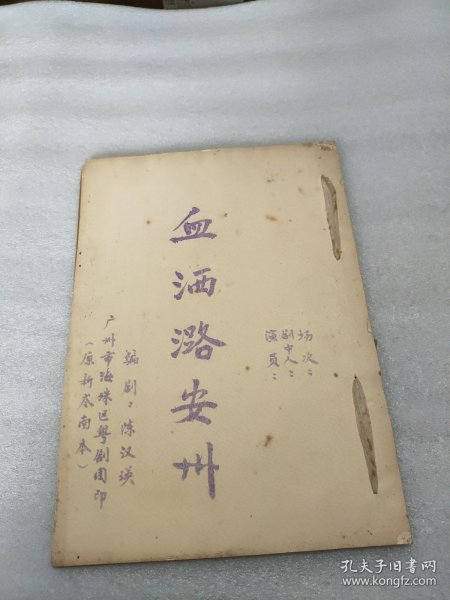 场次：
剧中人：
演员：
血洒潞安州
编剧：陈汉瑛
广州市海珠区粤剧团印
（原新岑南本）
孔夫子旧书网
www.kongfz.com